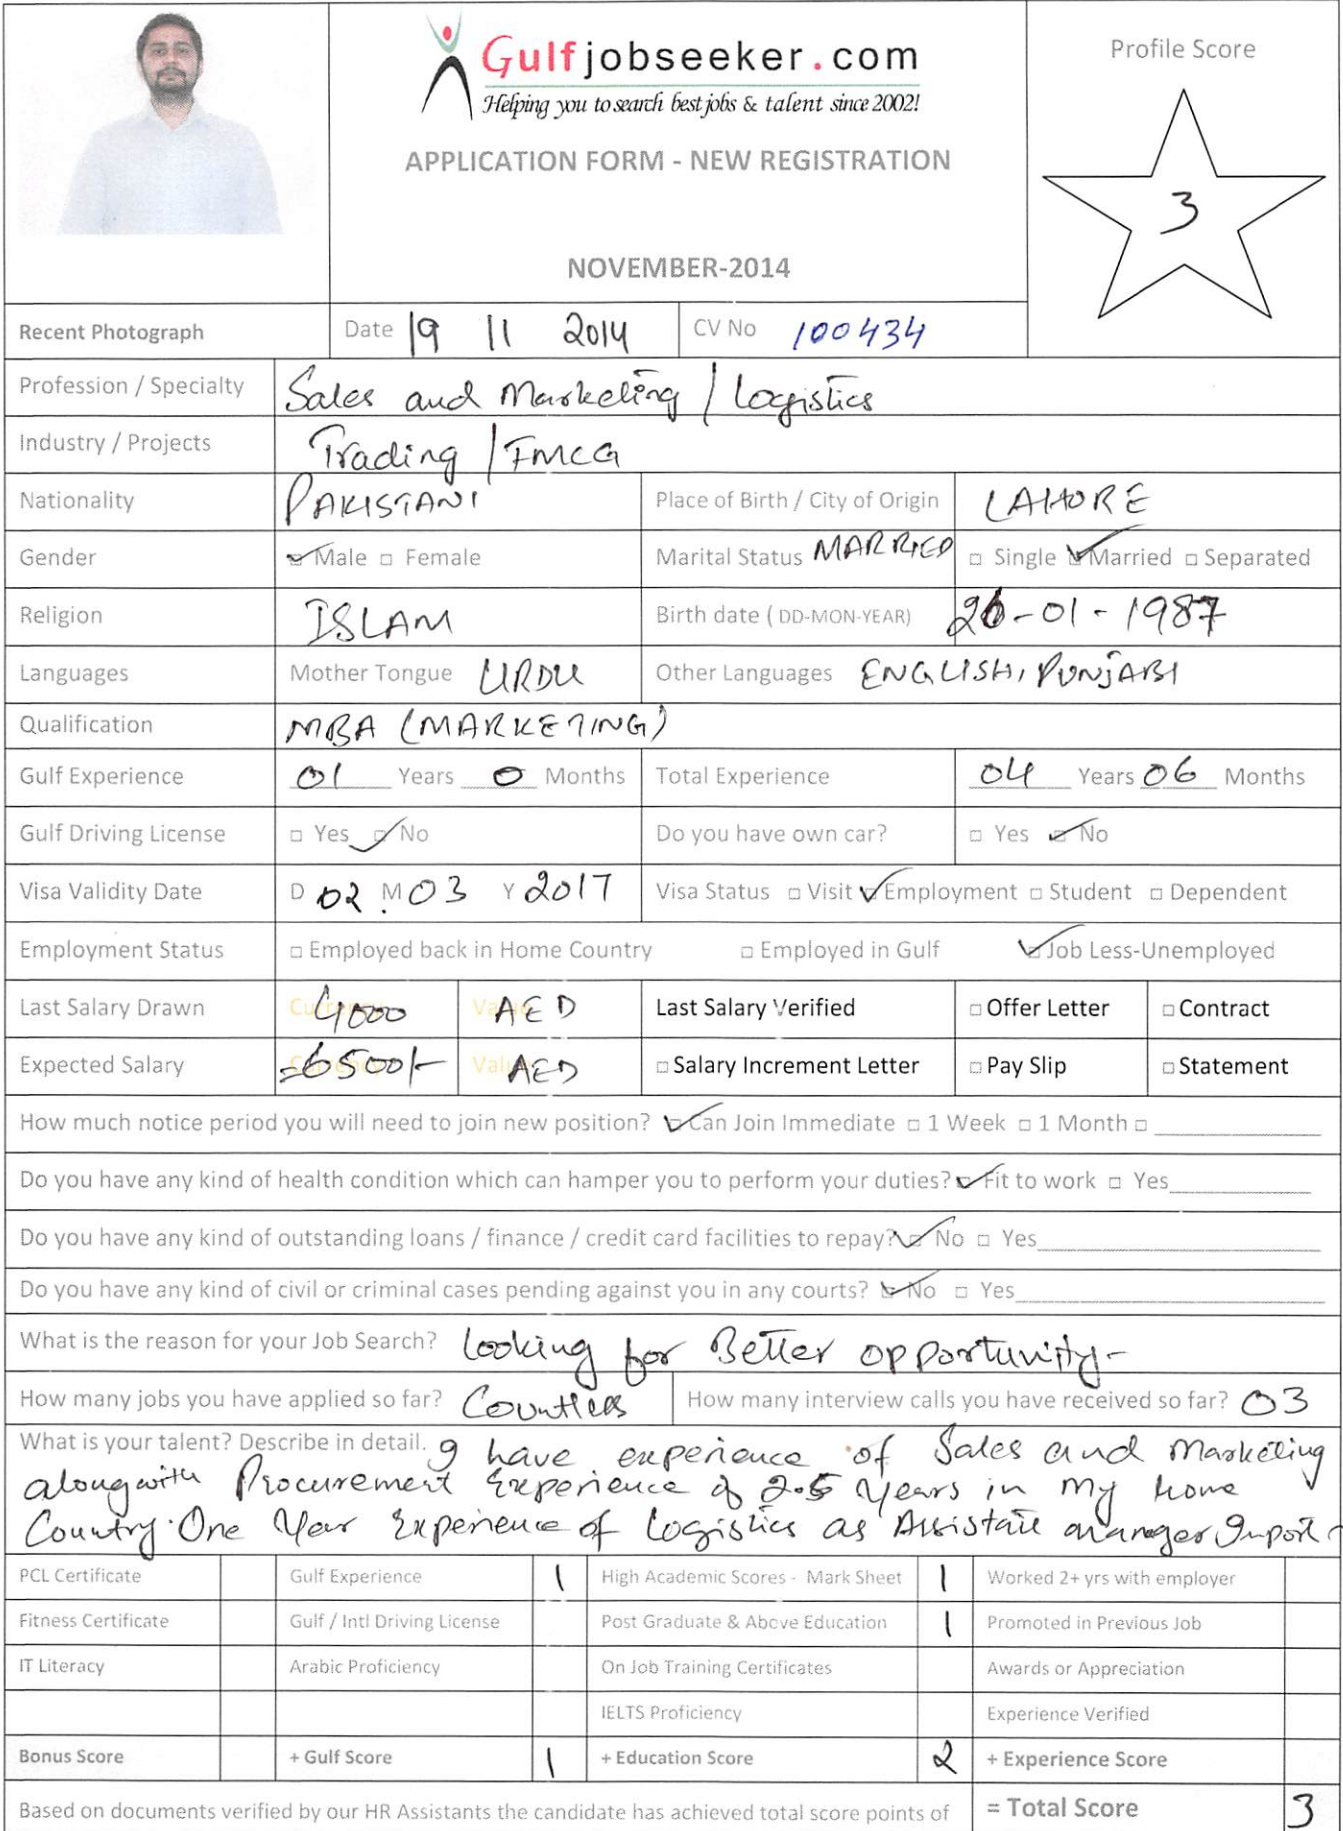 Gulfjobseeker.com
Helping you to search best jobs & talent since 2002!
APPLICATION FORM - NEW REGISTRATION
NOVEMBER-2014
Profile Score
3
Recent Photograph Date 19 11 2014 CV No 100434
Profession / Specialty Sales and Marketing / Logistics
Industry / Projects Trading / FMCG
Nationality PAKISTANI Place of Birth / City of Origin LAHORE
Gender Male Female Marital Status MARRIED Single Married Separated
Religion ISLAM Birth date ( DD-MON-YEAR) 26-01-1987
Languages Mother Tongue URDU Other Languages ENGLISH, PUNJABI
Qualification MBA (MARKETING)
Gulf Experience 01 Years 0 Months Total Experience 04 Years 06 Months
Gulf Driving License Yes No Do you have own car? Yes No
Visa Validity Date D 02 M 03 Y 2017 Visa Status Visit Employment Student Dependent
Employment Status Employed back in Home Country Employed in Gulf Job Less-Unemployed
Last Salary Drawn Currency 4000 Value AED Last Salary Verified Offer Letter Contract
Expected Salary Currency =6500/- Value AED Salary Increment Letter Pay Slip Statement
How much notice period you will need to join new position? Can Join Immediate 1 Week 1 Month
Do you have any kind of health condition which can hamper you to perform your duties? Fit to work Yes
Do you have any kind of outstanding loans / finance / credit card facilities to repay? No Yes
Do you have any kind of civil or criminal cases pending against you in any courts? No Yes
What is the reason for your Job Search? Looking for Better opportunity-
How many jobs you have applied so far? Countless How many interview calls you have received so far? 03
What is your talent? Describe in detail. I have experience of Sales and Marketing
alongwith Procurement Experience of 2.5 Years in my home
Country. One Year Experience of Logistics as Assistant manager Import
PCL Certificate Gulf Experience 1 High Academic Scores - Mark Sheet 1 Worked 2+ yrs with employer
Fitness Certificate Gulf / Intl Driving License Post Graduate & Above Education 1 Promoted in Previous Job
IT Literacy Arabic Proficiency On Job Training Certificates Awards or Appreciation
IELTS Proficiency Experience Verified
Bonus Score + Gulf Score 1 + Education Score 2 + Experience Score
Based on documents verified by our HR Assistants the candidate has achieved total score points of = Total Score 3